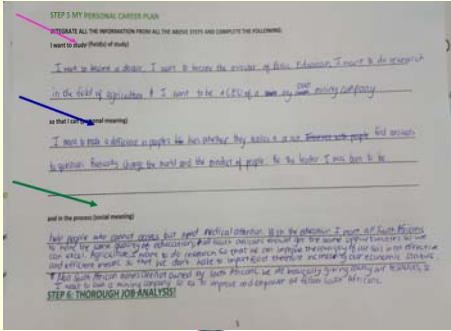 STEP 5 MY PERSONAL CAREER PLAN
INTEGRATE ALL THE INFORMATION FROM ALL THE ABOVE STEPS AND COMPLETE THE FOLLOWING:
I want to study (field(s) of study)
I want to become a doctor, I want to become the minister of Basic Education, I want to do research
in the field of agriculture & I want to be a CEO of a my own mining company
so that I can (personal meaning)
I want to make a difference in people's lives whether they realise it or not. find answers
to questions. Basically change the world and the mindset of people. Be the leader I was born to be.
and in the process (social meaning)
help people who cannot access but need medical attention. With the education I want all South Africans
to have the same quality of education, all South Africans should get the same opportunities so we
can excel. Agriculture, I want to do research so that we can improve the of our soil in an effective
and efficient means so that we don't have to import food therefore increasing our economic status.
Most South African mines are not owned by South Africans, we are basically giving away our resources, so
I want to own a mining company so as to improve and empower all fellow South Africans.
STEP 6: THOROUGH JOB ANALYSIS!